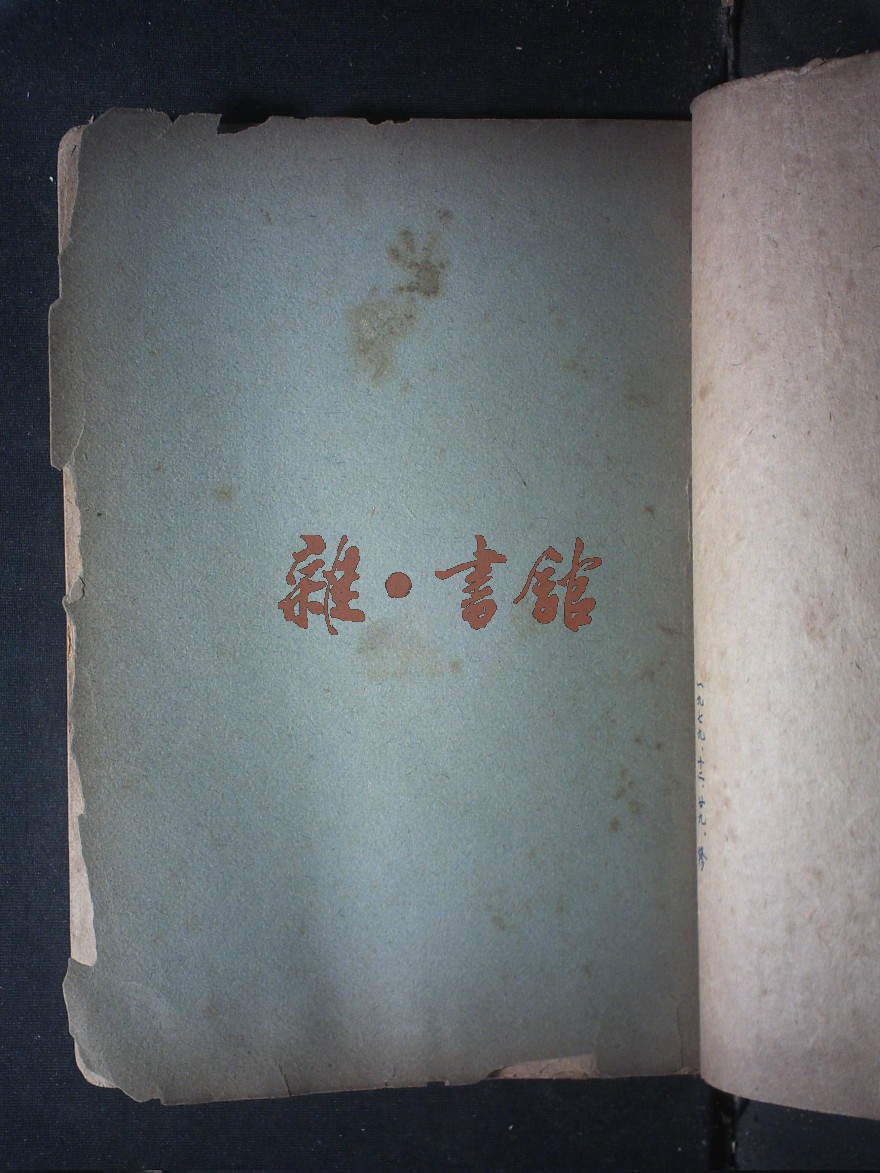 雜·書館
一九七九.十二.廿九.